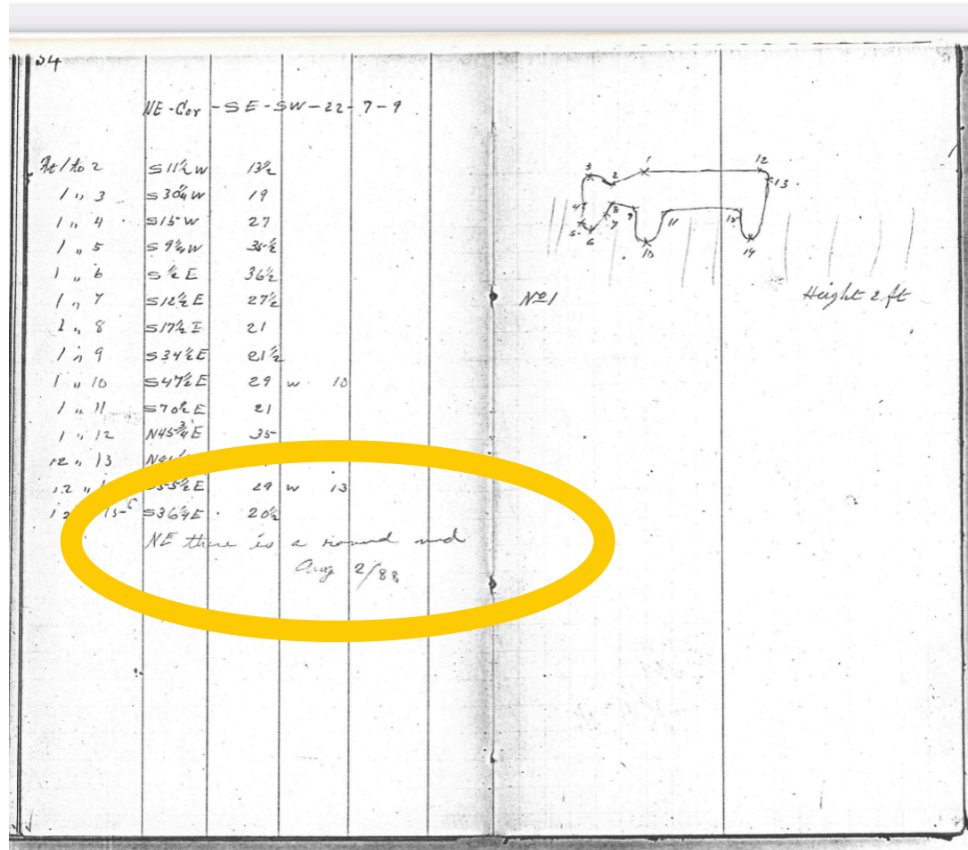 34
NE-Cor-SE-SW-22-7-9
St / to 2 S11½W 13½
1 " 3 S30¼W 19
1 " 4 S15W 27
1 " 5 S9¼W 35½
1 " 6 S½E 36½
1 " 7 S12½E 27½
1 " 8 S17½E 21
1 " 9 S34½E 21½
1 " 10 S47½E 29 W 10
1 " 11 S70½E 21
1 " 12 N45¾E 35
12 " 13
12 " S55½E 29 W 13
12 15 S36¼E 20½
NE there is a round md
Aug 2/88
3 2 1 12
13
4 8 9 11 15
5 6 7 10 14
No 1 Height 2 ft